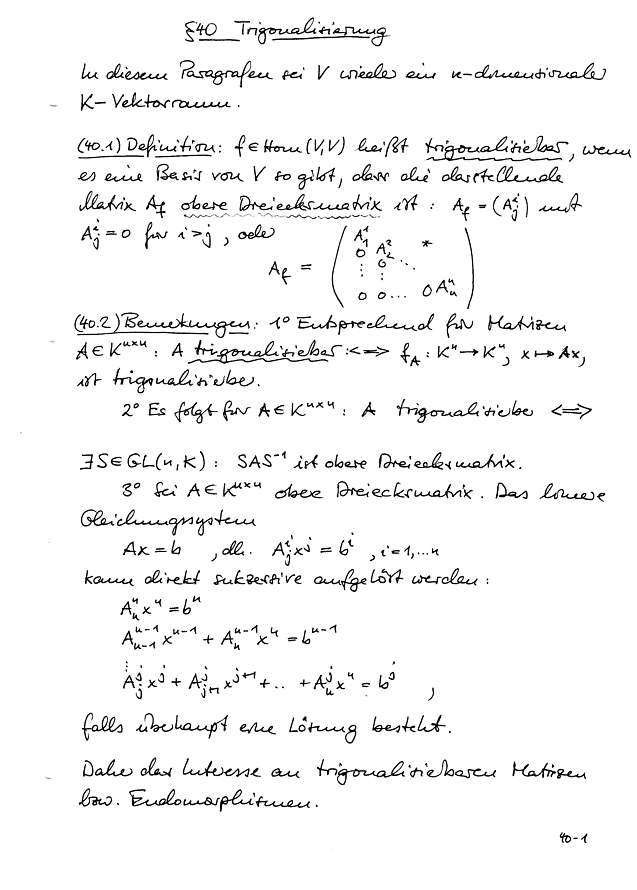 §40 Trigonalisierung
In diesem Paragrafen sei V wieder ein n-dimensionaler
K-Vektorraum.
(40.1) Definition: f ∈ Hom(V,V) heißt trigonalisierbar, wenn
es eine Basis von V so gibt, dass die darstellende
Matrix A_f obere Dreiecksmatrix ist: A_f = (A^i_j) mit
A^i_j = 0 für i > j, oder
A_f = ( A^1_1 A^2_2 * 0 0 ⋮ ⋮ ⋱ 0 0 ... 0 A^n_n )
(40.2) Bemerkungen: 1° Entsprechend für Matrizen
A ∈ K^{n×n}: A trigonalisierbar :⟺ f_A : K^n → K^n, x ↦ Ax,
ist trigonalisierbar.
2° Es folgt für A ∈ K^{n×n}: A trigonalisierbar ⟺
∃ S ∈ GL(n,K): SAS^{-1} ist obere Dreiecksmatrix.
3° Sei A ∈ K^{n×n} obere Dreiecksmatrix. Das lineare
Gleichungssystem
Ax = b , dh. A^i_j x^j = b^i , i = 1,...n
kann direkt sukzessive aufgelöst werden:
A^n_n x^n = b^n
A^{n-1}_{n-1} x^{n-1} + A^{n-1}_n x^n = b^{n-1}
⋮
A^j_j x^j + A^j_{j+1} x^{j+1} + .. + A^j_n x^n = b^j ,
falls überhaupt eine Lösung besteht.
Daher das Interesse an trigonalisierbaren Matrizen
bzw. Endomorphismen.
40-1